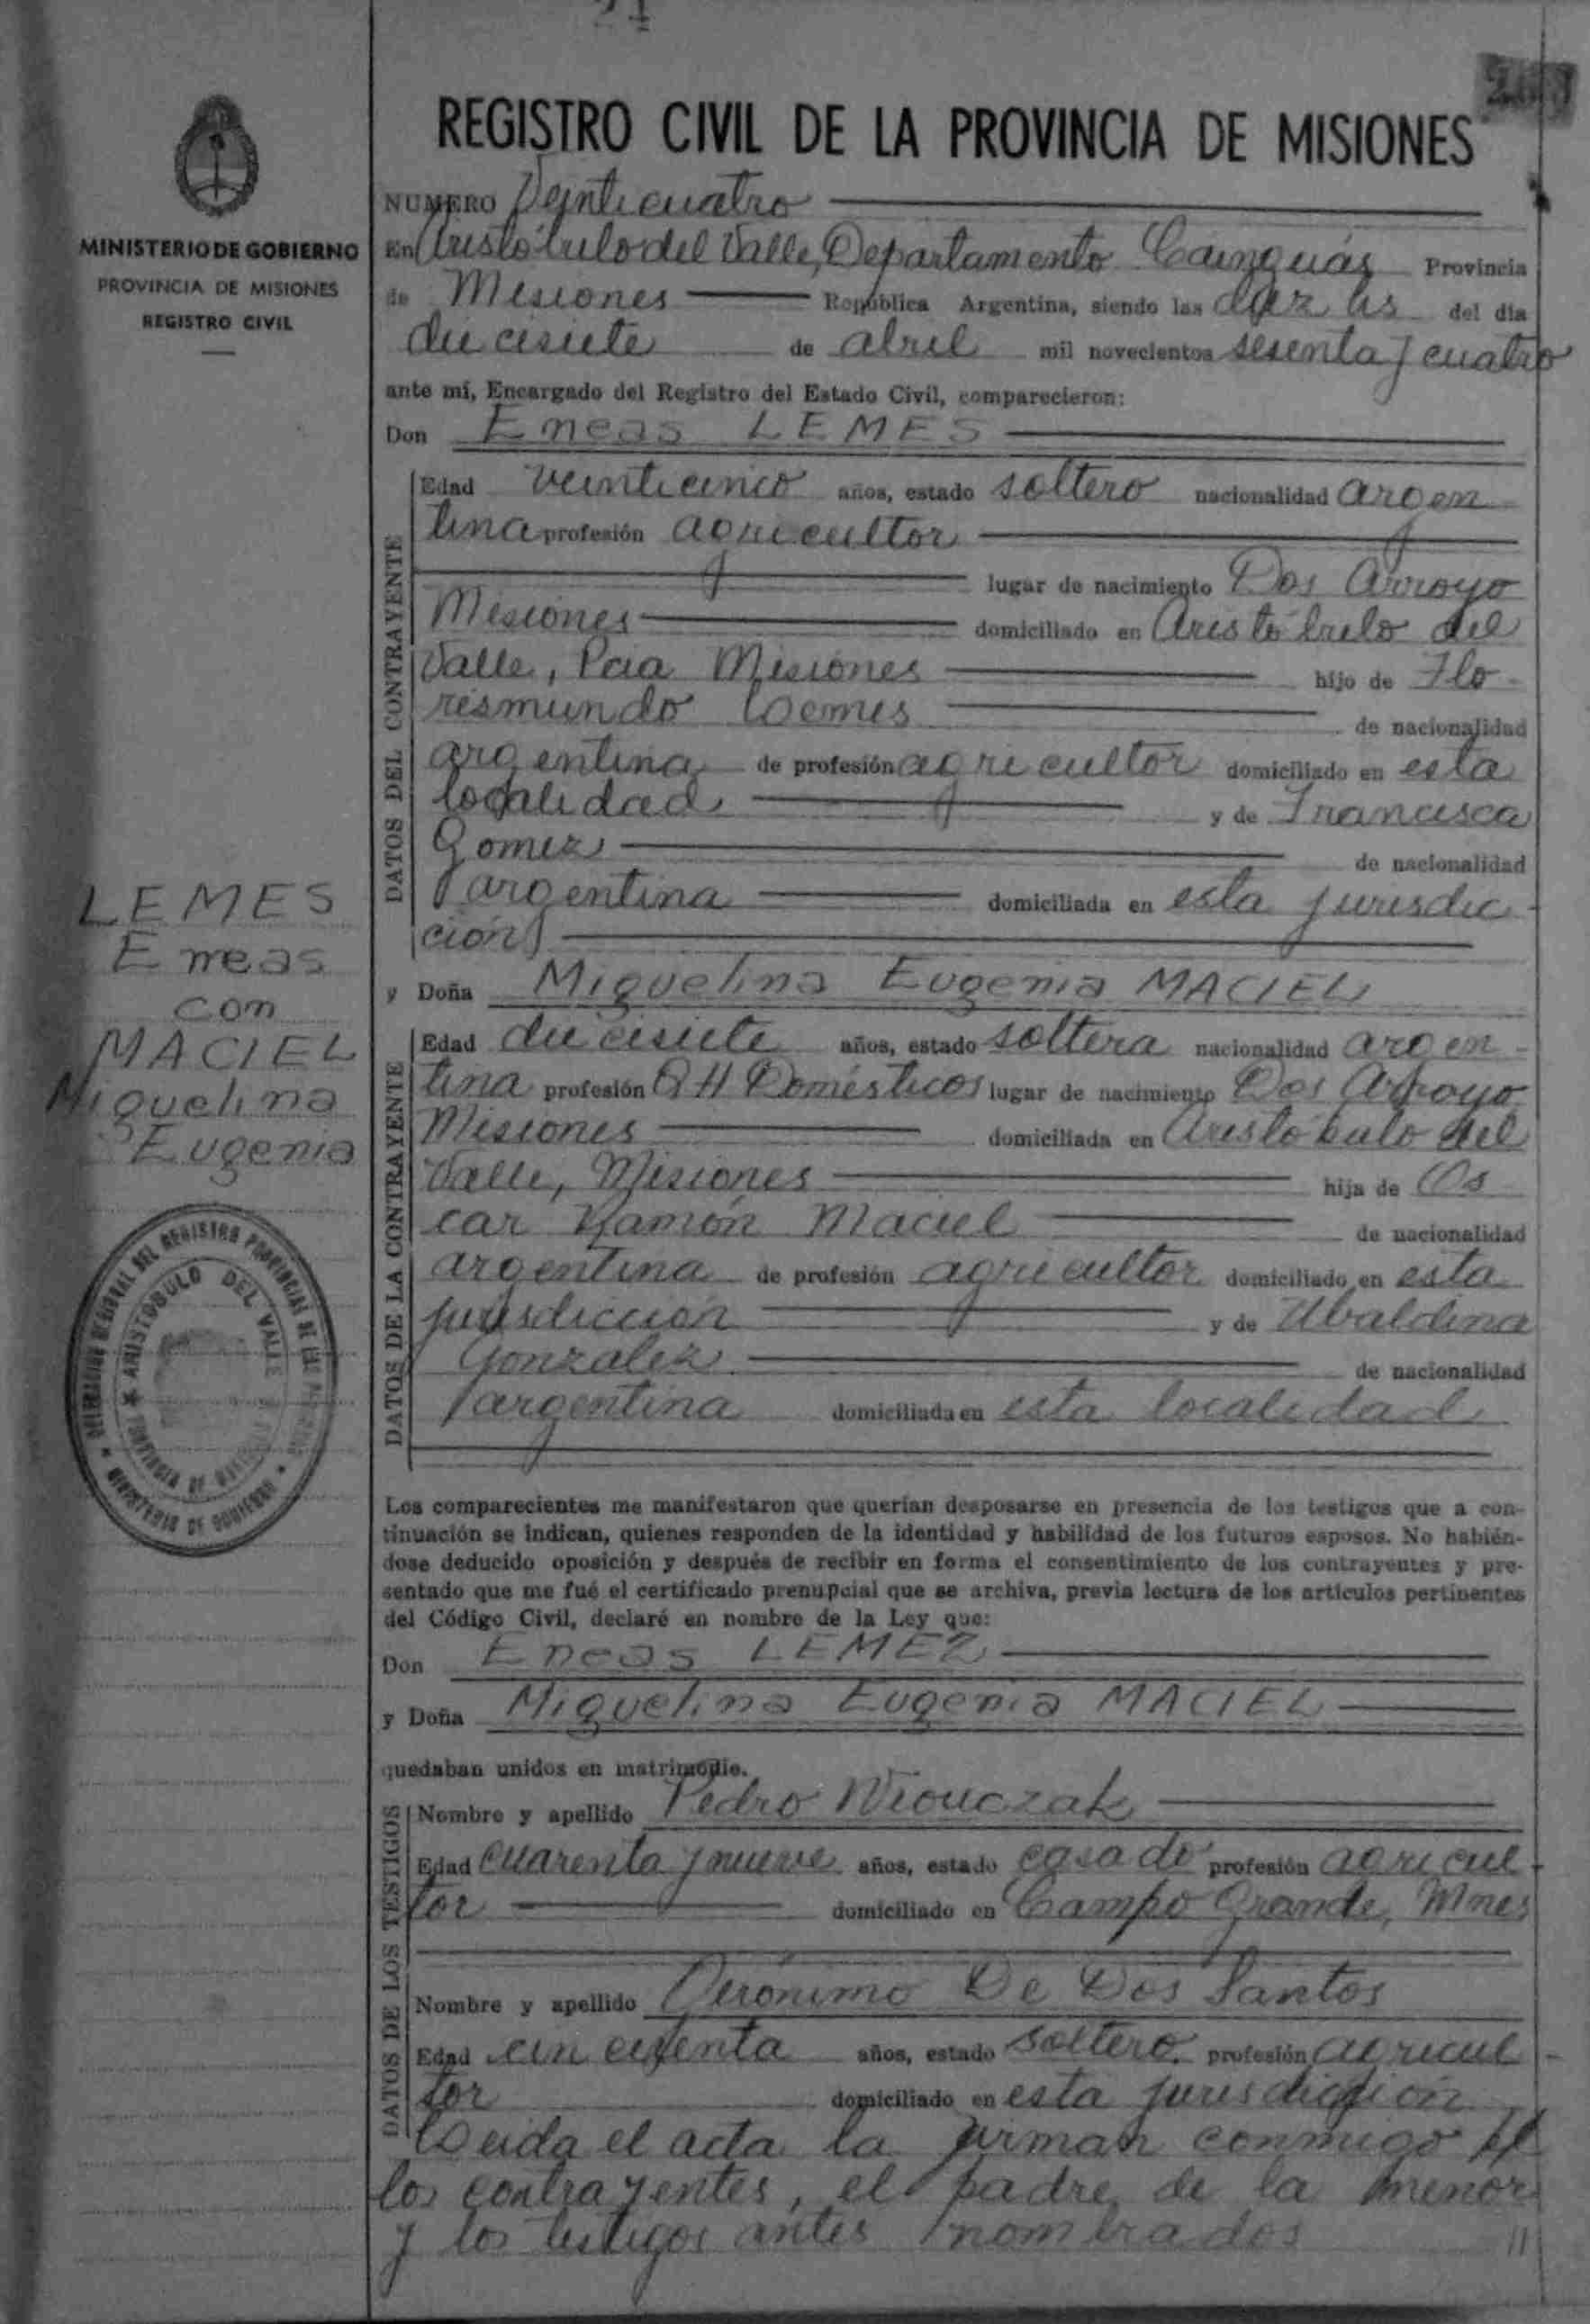 REGISTRO CIVIL DE LA PROVINCIA DE MISIONES
MINISTERIO DE GOBIERNO
PROVINCIA DE MISIONES
REGISTRO CIVIL
NUMERO Veinticuatro
En Aristóbulo del Valle, Departamento Cainguás Provincia
de Misiones República Argentina, siendo las diez hs del día
diecisiete de abril mil novecientos sesenta y cuatro
ante mí, Encargado del Registro del Estado Civil, comparecieron:
Don Eneas LEMES
DATOS DEL CONTRAYENTE
Edad veinticinco años, estado soltero nacionalidad argen
tina profesión agricultor
lugar de nacimiento Dos Arroyo
Misiones domiciliado en Aristóbulo del
Valle, Pcia Misiones hijo de Flo
rismundo Lemes de nacionalidad
argentina de profesión agricultor domiciliado en esta
localidad y de Francisca
Gomez de nacionalidad
argentina domiciliada en esta jurisdic-
ción
LEMES
Eneas
con
MACIEL
Miguelina
Eugenia
y Doña Miguelina Eugenia MACIEL
DATOS DE LA CONTRAYENTE
Edad diecisiete años, estado soltera nacionalidad argen-
tina profesión QH Domésticos lugar de nacimiento Dos Arroyo
Misiones domiciliada en Aristóbulo del
Valle, Misiones hija de Os
car Ramón Maciel de nacionalidad
argentina de profesión agricultor domiciliado en esta
jurisdicción y de Ubaldina
Gonzalez de nacionalidad
argentina domiciliada en esta localidad
DEL REGISTRO PROVINCIAL DE LAS
ARISTOBULO DEL VALLE
PROVINCIA DE MISIONES
MINISTERIO DE GOBIERNO
Los comparecientes me manifestaron que querían desposarse en presencia de los testigos que a con-
tinuación se indican, quienes responden de la identidad y habilidad de los futuros esposos. No habién-
dose deducido oposición y después de recibir en forma el consentimiento de los contrayentes y pre-
sentado que me fué el certificado prenupcial que se archiva, previa lectura de los artículos pertinentes
del Código Civil, declaré en nombre de la Ley que:
Don Eneas LEMEZ
y Doña Miguelina Eugenia MACIEL
quedaban unidos en matrimonio.
DATOS DE LOS TESTIGOS
Nombre y apellido Pedro
Edad cuarenta y nueve años, estado casado profesión agricul-
tor domiciliado en Campo Grande, Mnes
Nombre y apellido Gerónimo De Dos Santos
Edad cincuenta años, estado soltero profesión agricul-
tor domiciliado en esta jurisdicción
Leida el acta la firman conmigo
los contrayentes, el padre de la menor
y los testigos antes nombrados //